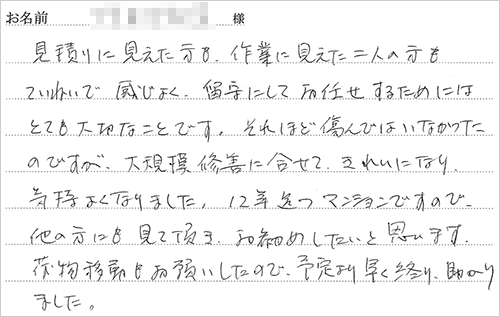 お名前 様
見積りに見えた方も、作業に見えた二人の方も
ていねいで感じよく、留守にしてお任せするためには
とても大切なことです。それほど傷んではいなかった
のですが、大規模修善に合せて、きれいになり、
気持よくなりました。12年たつマンションですので、
他の方にも見て頂き、お勧めしたいと思います。
荷物移動もお願いしたので、予定より早く終り、助かり
ました。